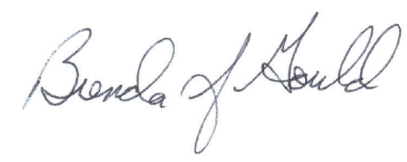 Brenda J Gould